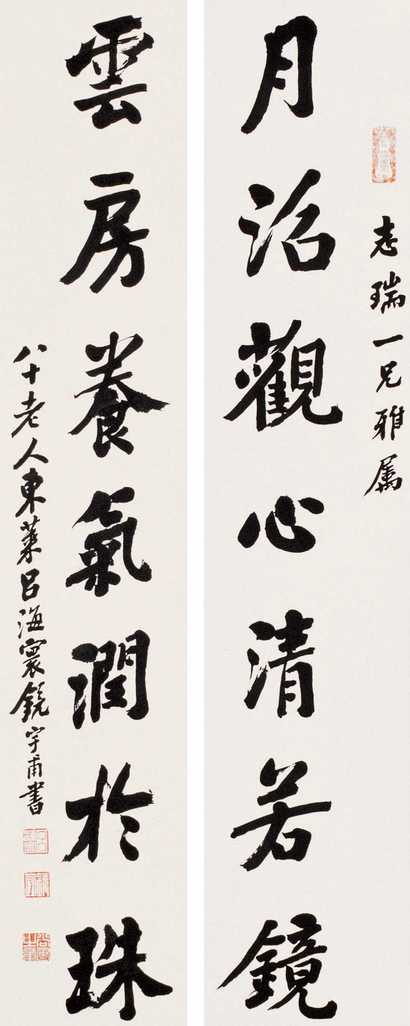 志瑞一兄雅属
月沼觀心清若鏡
雲房養氣潤於珠
八十老人東萊呂海寰鏡宇甫書